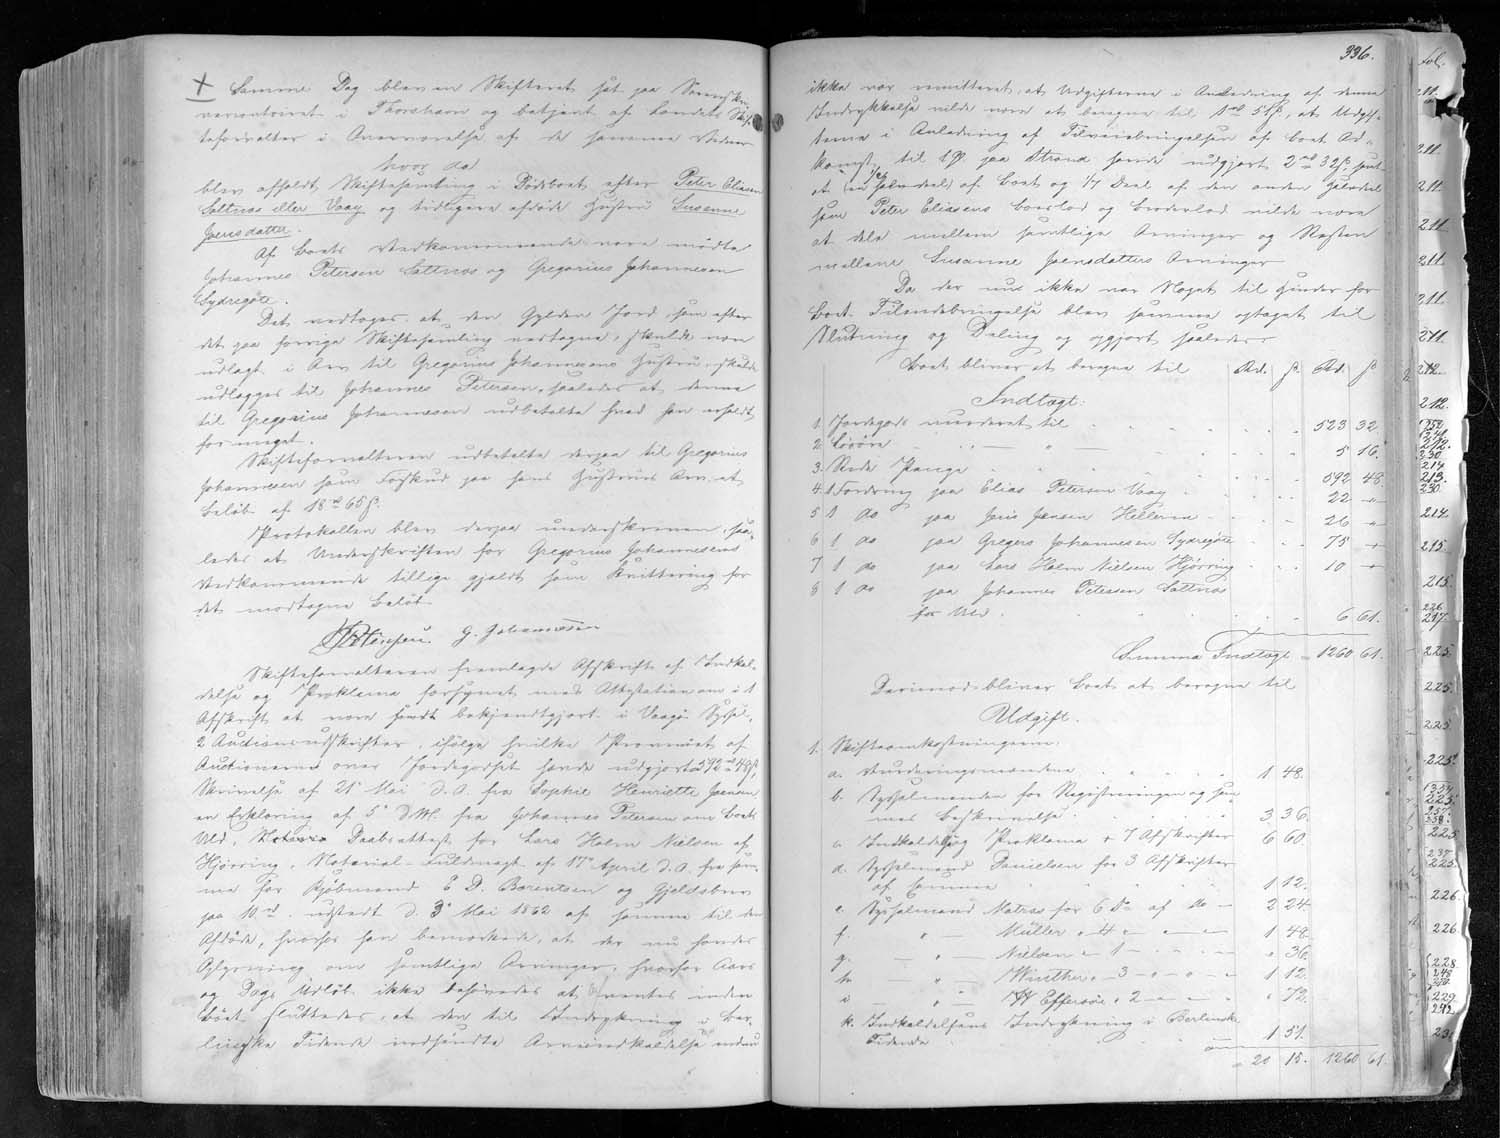 Samme Dag blev en Skifteret sat paa Sorenskri-
vercontoiret i Thorshavn og betjent af Landets Skif-
teforvalter i Overværelse af de samme Vidner
hvor da
blev afholdt Skiftesamling i Dødsboet efter Peter Eliasen
Saltnæs eller Vaag og tidligere afdøde Hustru Susanne
Joensdatter.
Af Boets Vedkommende vare mødte
Johannes Petersen Saltnæs og Gregorius Johannesen
Sydregøte.
Det vedtoges at den Gylden Jord, som efter
det paa forrige Skiftesamling vedtagne, skulde være
udlagt i Arv til Gregorius Johannesens Hustru, skulde
udlægges til Johannes Petersen, saaledes at denne
til Gregorius Johannesen udbetalte hvad han erholdt
for meget.
Skifteforvalteren udbetalte derpaa til Gregorius
Johannesen som Forskud paa hans Hustrues Arv et
Beløb af 18 rd 65 ß.
Protokollen blev derpaa underskreven, saa-
ledes at Underskriften for Gregorius Johannesens
Vedkommende tillige gjaldt som Kvittering for
det modtagne Beløb.
G. Johannesen
Skifteforvalteren fremlagde Afskrift af Indkal-
delse og Proklama forsynet med Attestation om i 1
Afskrift at være bekjendtgjort i Vaagø Syssel,
2 Auctionsudskrifter, ifølge hvilke Provenüet af
Auctionerne over Jordegodset havde udgjort 592 rd 48 ß,
Skrivelse af 21 Mai d.A. fra Sophie Henriette Joensen
en Erklæring af 5 d.M. fra Johannes Petersen om Boets
Uld, Daabsattest for Lars Holm Nielsen af
Hjørring, Notarial-Fuldmagt af 17 April d.A. fra sam-
me for Kjøbmand E D. Børentsen og Gjeldsbrev
paa 10 rd udstedt d. 3 Mai 1862 af samme til den
Afdøde, hvorhos han bemærkede, at der nu havdes
Oplysning om samtlige Arvinger, hvorfor Aars
og Dags Udløb ikke behøvedes at ventes inden
Boet sluttedes, at den til Indrykning i Ber-
lingske Tidende indsendte Arveindkaldelse endnu
336.
ikke var remitteret, at Udgifterne i Anledning af denne
Indrykkelse vilde være at beregne til 1 rd 51 ß, at Udgif-
terne i Anledning af Tilveiebringelsen af Boet Ad-
komst til 1 Gl. paa Strand havde udgjort 2 rd 32 ß samt
at (en halvdeel) af Boet og 1/7 Deel af den anden Halvdeel
som Peter Eliasens Boeslod og Broderlod vilde være
at dele mellem samtlige Arvinger og Resten
mellem Susanne Joensdatters Arvinger
Da der nu ikke var Noget til Hinder for
Boet Tilendebringelse blev samme optaget til
Slutning og Deling og opgjort saaledes
Boet bliver at beregne til Rd. ß Rd. ß
Indtægt:
1. Jordegods vurderet til 523 32
2. Løsøre 5 16
3. Rede Penge 592 48
4. 1 Fordring paa Elias Petersen Vaag 22 "
5 1 do paa Joen Joensen Helleren 26 "
6 1 do paa Gregers Johannesen Sydregøte 75 "
7 1 do paa Lars Holm Nielsen Hjørring 10 "
8 1 do paa Johannes Petersen Saltnæs
for Uld 6 61.
Summa Indtægt = 1260 61.
Derimod bliver Boet at beregne til
Udgift.
1. Skifteomkostningerne:
a. Vurderingsmændene 1 48.
b. Sysselmanden for Registreringen og sam-
mes Beskrivelse 3 36
c. Indkaldelse og Proklama + 7 Afskrifter 6 60.
d. Sysselmand Danielsen for 3 Afskrifter
af samme 1 12.
e. Sysselmand Matras for 6 Do af do — 2 24.
f. " — Müller " 4 — " — 1 48
g. — " — Nielsen " 1 — " 36
h. — " — Winther " 3 — " — 1 12.
i — " — W Effersøe " 2 — " — " 72.
k. Indkaldelsens Indrykning i Berlinske
Tidende 1 51.
= 20 15. 1260 61.
Fol.
211.
211.
211
211
211.
211.
211.
212.
212.
330
214
213.
230
214
215.
215.
226
217.
225.
225.
225
225
225
225
225.
226.
226.
228
229